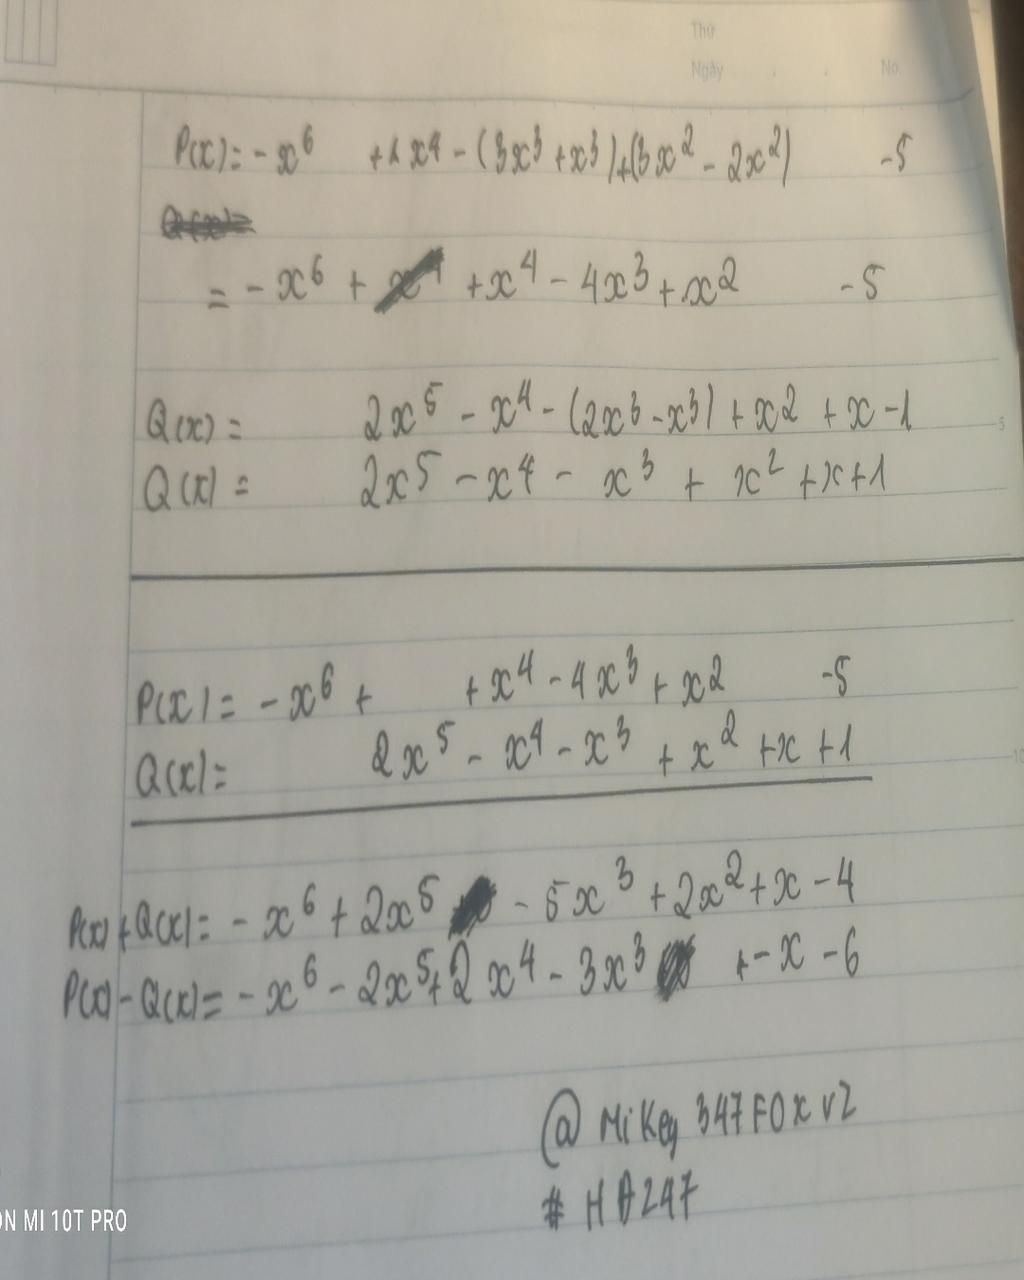 Thứ
Ngày No.
P(x)= -x⁶ +1x⁴ - (3x³ +x³)+(3x² - 2x²) -5
= -x⁶ + +x⁴ - 4x³ + x² -5
Q(x) = 2x⁵ - x⁴ - (2x³ - x³) + x² + x - 1
Q(x) = 2x⁵ - x⁴ - x³ + x² + x + 1
P(x) = -x⁶ + + x⁴ - 4x³ + x² -5
Q(x) = 2x⁵ - x⁴ - x³ + x² + x + 1
P(x) + Q(x) = -x⁶ + 2x⁵ - 5x³ + 2x² + x - 4
P(x) - Q(x) = -x⁶ - 2x⁵ + 2x⁴ - 3x³ + - x - 6
@ MiKey 347FOX v2
# HA247
ON MI 10T PRO